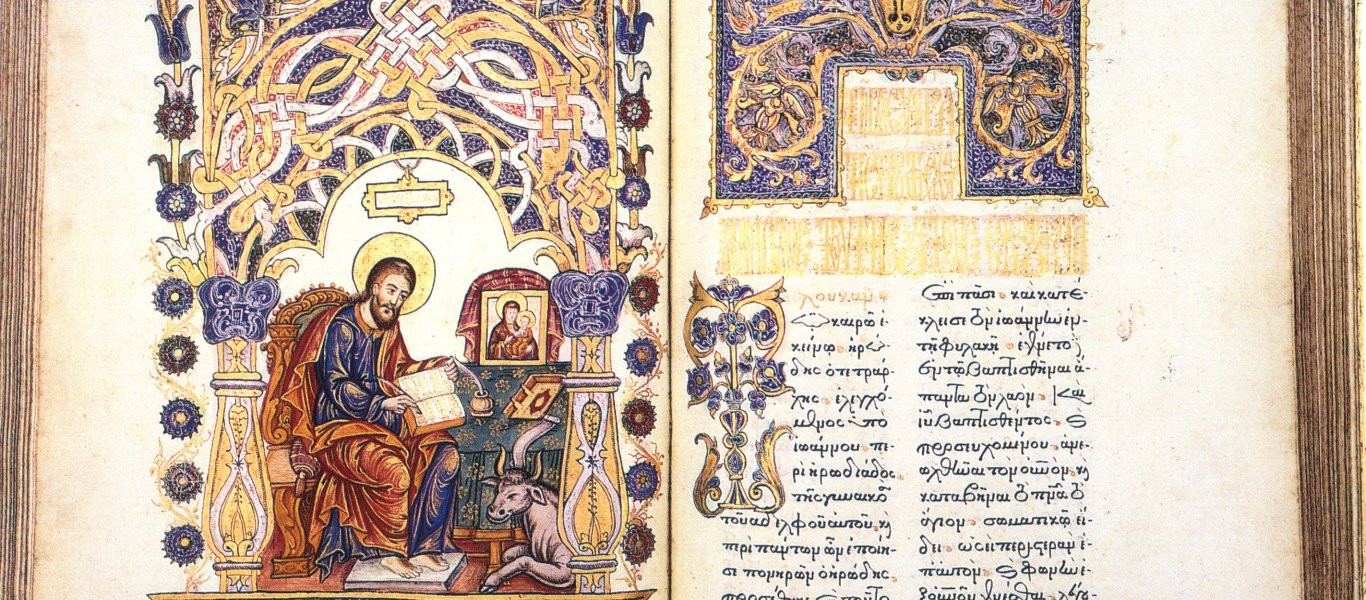 λουκᾶν
καιρῷ ἐ-
κείνῳ ἡρώ-
δης ὁ τετράρ-
χης ἐλεγχό-
μενος ὑπὸ
ἰωάννου πε-
ρὶ ἡρωδιάδος
τῆς γυναικὸς
τοῦ ἀδελφοῦ αὐτοῦ, καὶ
περὶ πάντων ὧν ἐποίη-
σε πονηρῶν ὁ ἡρώδης.
προσέθηκε καὶ τοῦτο
ἐπὶ πᾶσι. καὶ κατέ-
κλεισε τὸν ἰωάννην ἐν
τῇ φυλακῇ. ἐγένετο δὲ
ἐν τῷ βαπτισθῆναι ἅ-
παντα τὸν λαὸν. καὶ
ἰῦ βαπτισθέντος. καὶ
προσευχομένου. ἀνε-
ῳχθῆναι τὸν οὐνὸν, καὶ
καταβῆναι τὸ πνᾶ τὸ
ἅγιον. σωματικῷ εἴ-
δει. ὡσεὶ περιστερὰν ἐ-
π' αὐτόν. καὶ φωνὴν ἐ-
ξ οὐνοῦ γενέσθαι λέγου-